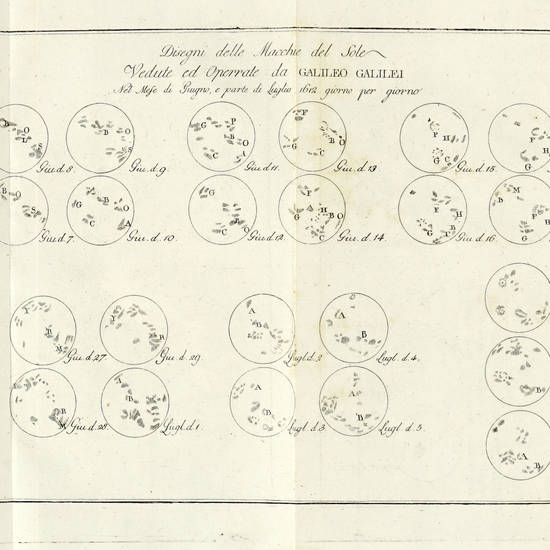 Disegni delle Macchie del Sole
Vedute ed Operrate da GALILEO GALILEI
Nel Mese di Giugno, e parte di Luglio 1612 giorno per giorno
B O L S Giu. d. 8
B O S Giu. d. 9
G P B O C A Giu. d. 11.
F B O C Giu. d. 13
F H G C Giu. d. 15.
F G C
B O S Giu. d. 7.
B O C A Giu. d. 10.
G B O C Giu. d. 12
F H B O G C Giu. d. 14.
F H G B Giu. d. 16.
M B F H G
B M Giu. d. 27
R Giu. d. 29.
A B Lugl. d. 2
A B Lugl. d. 4.
B M Giu. d. 28.
A B Lugl. d. 1
A B Lugl. d. 3
A B Lugl. d. 5.
B
A B